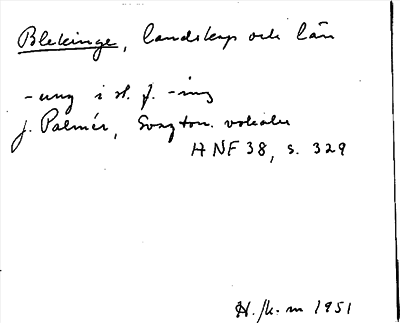 Blekinge, landskap och län
-ung i st. f. -ing
J. Palmér, Svagton. vokaler
ANF 38, s. 329
H. /k. m 1951